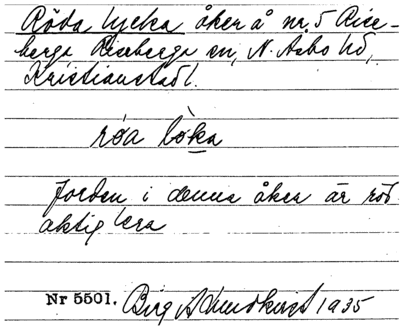 Röda lycka åker å nr. 5 Rise-
berga Riseberga sn, N. Asbo hd,
Kristianstad l.
röa lòka
Jorden i denna åker är röd-
aktig lera
Nr 5501. Birg A Lundkvist 1935